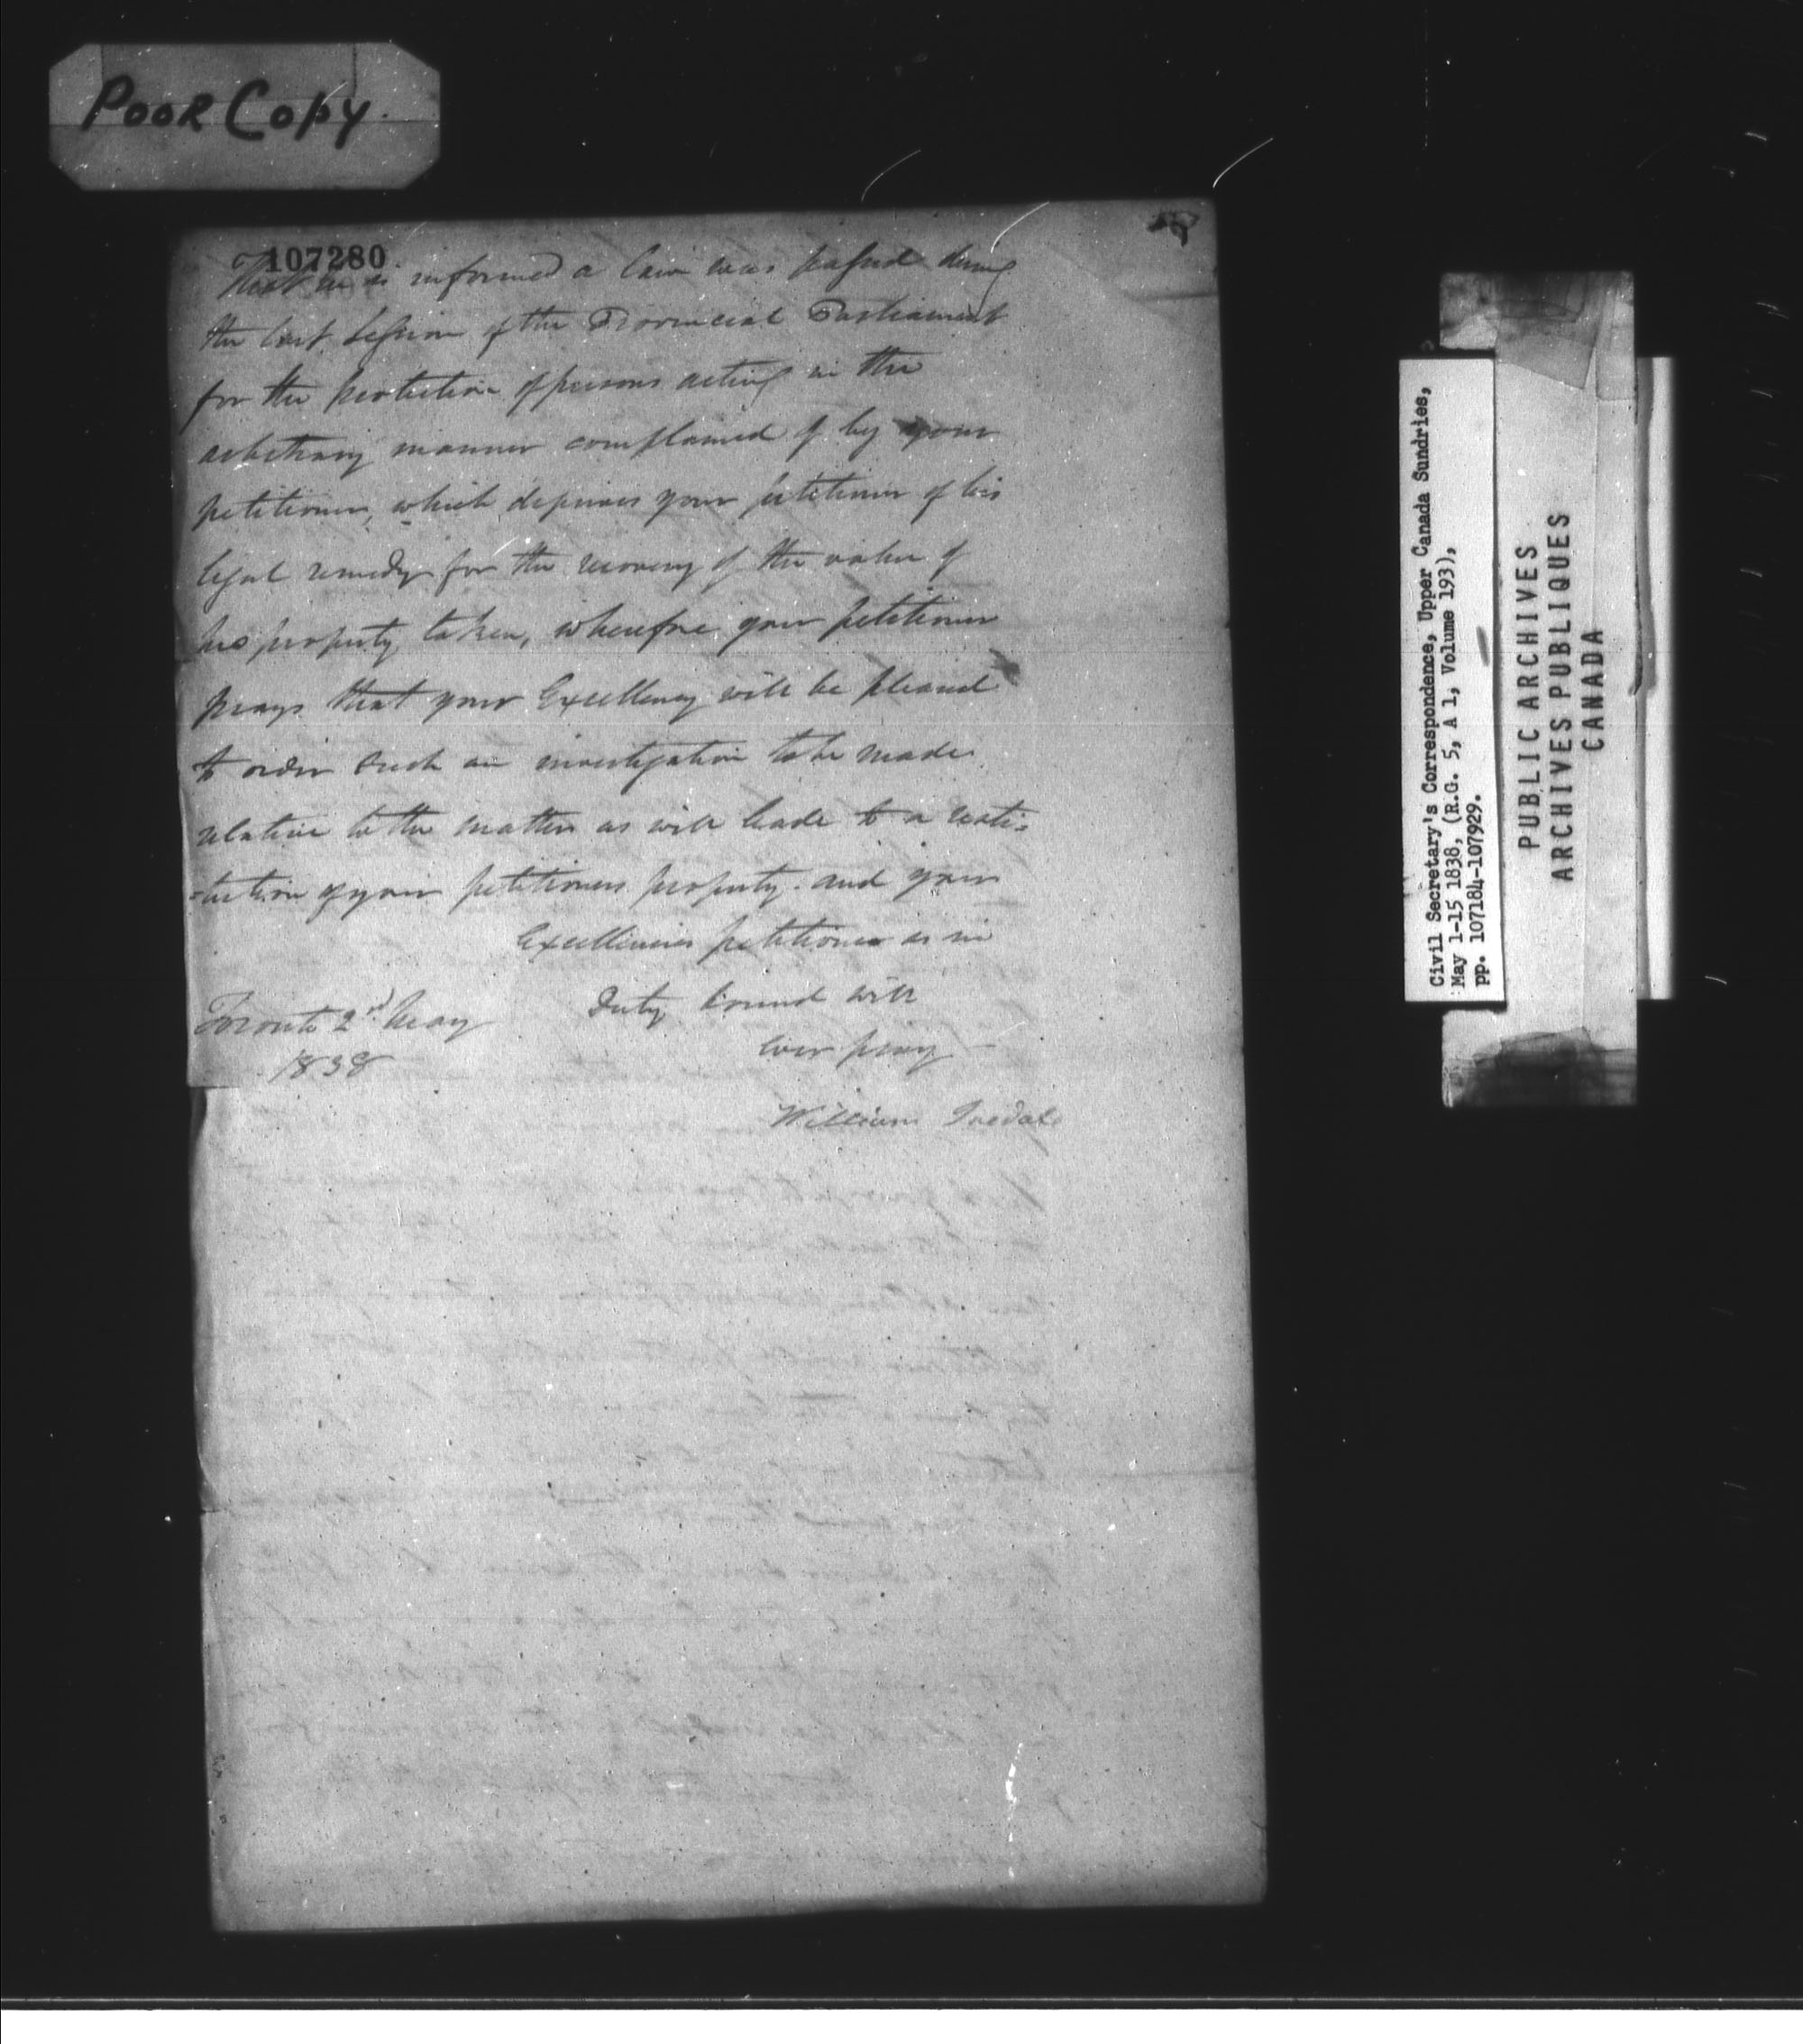 Poor Copy.
107280
That he is informed a law was passed during
the last Session of the Provincial Parliament
for the protection of persons acting in the
arbitrary manner complained of by your
petitioner, which deprives your petitioner of his
legal remedy for the recovery of the value of
his property taken, wherefore your petitioner
prays that your Excellency will be pleased
to order such an investigation to be made
relative to the matter as will leade to a resti-
-tution of your petitioners property. and your
Excellencies petitioner as in
Duty bound will
ever pray
Toronto 2nd May
1838
William Iredale
Civil Secretary's Correspondence, Upper Canada Sundries,
May 1-15 1838, (R.G. 5, A 1, Volume 193),
pp. 107184-107929.
PUBLIC ARCHIVES
ARCHIVES PUBLIQUES
CANADA